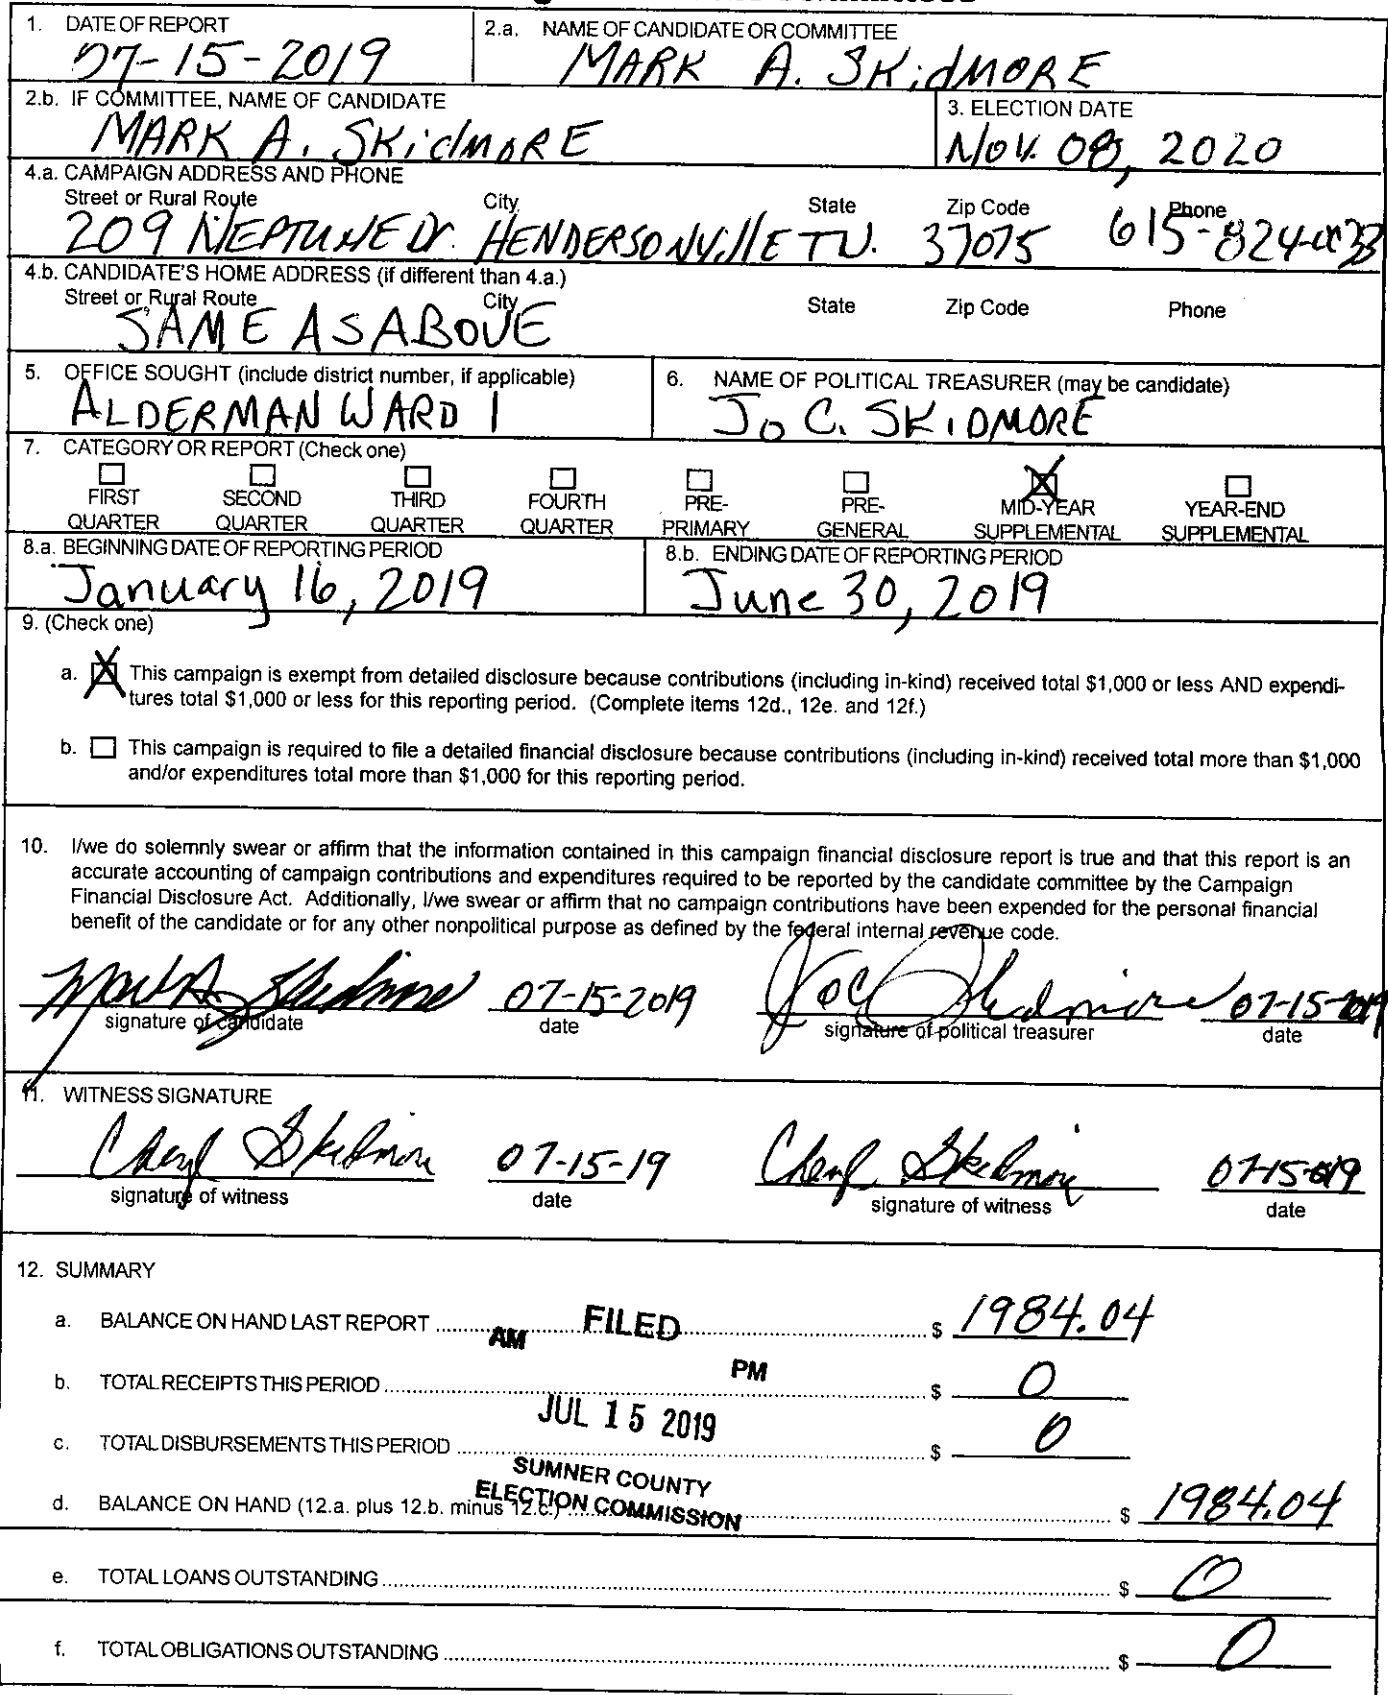 1. DATE OF REPORT
07-15-2019
2.a. NAME OF CANDIDATE OR COMMITTEE
MARK A. SKidMORE
2.b. IF COMMITTEE, NAME OF CANDIDATE
MARK A. SKidMORE
3. ELECTION DATE
Nov. 08, 2020
4.a. CAMPAIGN ADDRESS AND PHONE
Street or Rural Route City State Zip Code Phone
209 NEPTUNE Dr. HENDERSONVillE TN. 37075 615-824-
4.b. CANDIDATE'S HOME ADDRESS (if different than 4.a.)
Street or Rural Route City State Zip Code Phone
SAME AS ABOVE
5. OFFICE SOUGHT (include district number, if applicable)
ALDERMAN WARD 1
6. NAME OF POLITICAL TREASURER (may be candidate)
Jo C. SKIDMORE
7. CATEGORY OR REPORT (Check one)
FIRST SECOND THIRD FOURTH PRE- PRE- MID-YEAR YEAR-END
QUARTER QUARTER QUARTER QUARTER PRIMARY GENERAL SUPPLEMENTAL SUPPLEMENTAL
8.a. BEGINNING DATE OF REPORTING PERIOD
January 16, 2019
8.b. ENDING DATE OF REPORTING PERIOD
June 30, 2019
9. (Check one)
a. X This campaign is exempt from detailed disclosure because contributions (including in-kind) received total $1,000 or less AND expendi-
tures total $1,000 or less for this reporting period. (Complete items 12d., 12e. and 12f.)
b. This campaign is required to file a detailed financial disclosure because contributions (including in-kind) received total more than $1,000
and/or expenditures total more than $1,000 for this reporting period.
10. I/we do solemnly swear or affirm that the information contained in this campaign financial disclosure report is true and that this report is an
accurate accounting of campaign contributions and expenditures required to be reported by the candidate committee by the Campaign
Financial Disclosure Act. Additionally, I/we swear or affirm that no campaign contributions have been expended for the personal financial
benefit of the candidate or for any other nonpolitical purpose as defined by the federal internal revenue code.
Mark A. Skidmore 07-15-2019 Jo C Skidmore 07-15-2019
signature of candidate date signature of political treasurer date
11. WITNESS SIGNATURE
Cheryl Skidmore 07-15-19 Cheryl Skidmore 07-15-019
signature of witness date signature of witness date
12. SUMMARY
a. BALANCE ON HAND LAST REPORT $ 1984.04
AM FILED
PM
b. TOTAL RECEIPTS THIS PERIOD $ 0
JUL 15 2019
c. TOTAL DISBURSEMENTS THIS PERIOD $ 0
SUMNER COUNTY
ELECTION COMMISSION
d. BALANCE ON HAND (12.a. plus 12.b. minus 12.c.) $ 1984.04
e. TOTAL LOANS OUTSTANDING $ 0
f. TOTAL OBLIGATIONS OUTSTANDING $ 0